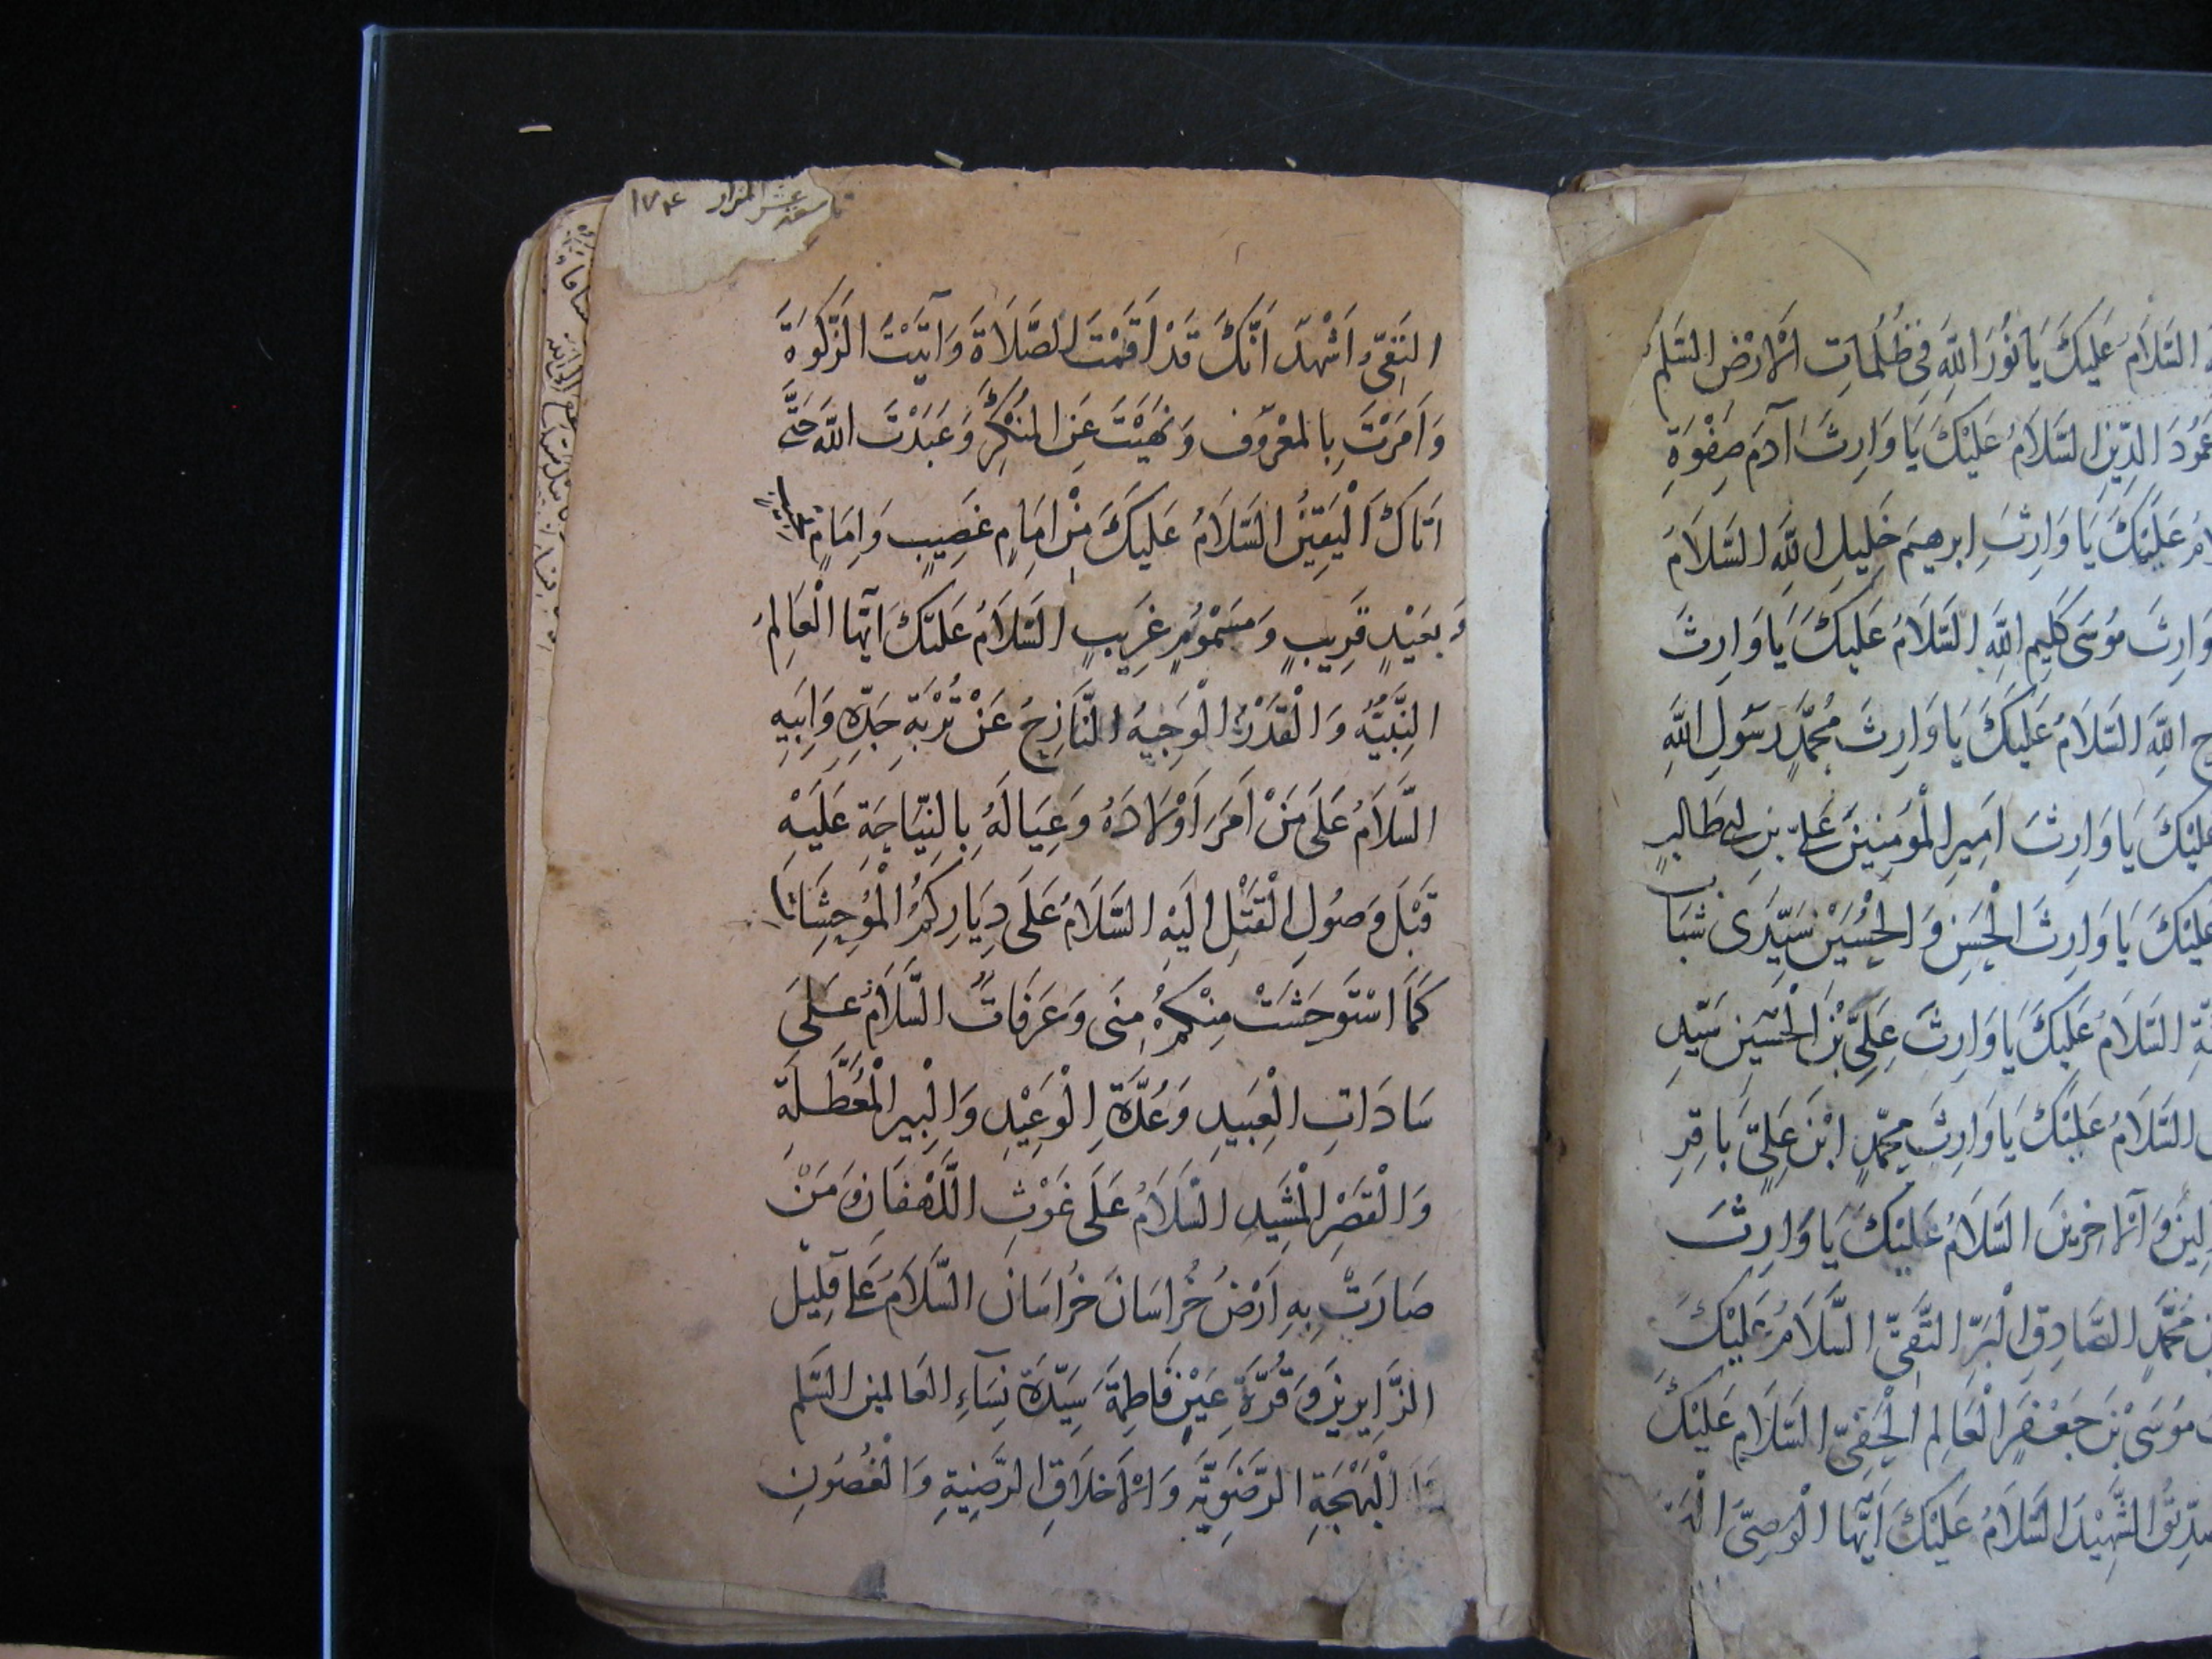 السَّلَامُ عَلَيْكَ يَا نُورَ اللهِ فِي ظُلُمَاتِ الْاَرْضِ السَّلم
عَمُودَ الدِّينِ السَّلَامُ عَلَيْكَ يَا وَارِثَ آدَمَ صِفْوَةِ
عَلَيْكَ يَا وَارِثَ ابرهيم خَلِيلِ اللهِ السَّلَامُ
وَارِثَ مُوسَى كَلِيمِ اللهِ السَّلَامُ عَلَيْكَ يَا وَارِثَ
اللهِ السَّلَامُ عَلَيْكَ يَا وَارِثَ مُحَمَّدٍ رَسُولِ اللهِ
عَلَيْكَ يَا وَارِثَ اَمِيرِ الْمُؤمِنِينَ عَلِيِّ بْنِ ابي طَالِبٍ
عَلَيْكَ يَا وَارِثَ الْحَسَنِ وَ الْحُسَيْنِ سَيِّدَى شَبَابِ
السَّلَامُ عَلَيْكَ يَا وَارِثَ عَلِيِّ بْنِ الْحُسَيْنِ سَيِّدِ
السَّلَامُ عَلَيْكَ يَا وَارِثَ مُحَمَّدٍ ابْنِ عَلِيٍّ بَاقِرِ
وَ الْآخِرِينَ السَّلَامُ عَلَيْكَ يَا وَارِثَ
مُحَمَّدٍ الصَّادِقِ الْبَرِّ التَّقِيِّ السَّلَامُ عَلَيْكَ
مُوسَى بْنَ جَعْفَرٍ الْعَالِمِ الْحَفِيِّ السَّلَامُ عَلَيْكَ
الشَّهِيْدُ السَّلَامُ عَلَيْكَ اَيُّهَا الْوَصِيُّ
عشر المزار ١٧٤
النَّقِيُّ اَشْهَدُ اَنَّكَ قَدْ اَقَمْتَ الصَّلَاةَ وَآتَيْتَ الزَّكٰوةَ
وَ اَمَرْتَ بِالمَعْرُوفِ وَ نَهَيْتَ عَنِ الْمُنْكَرِ وَ عَبَدْتَ اللهَ حَتَّى
اَتَاكَ الْيَقِيْنُ السَّلَامُ عَلَيْكَ مِنْ اِمَامٍ غَصِيبٍ وَ اِمَامٍ
وَ بَعِيْدٍ قَرِيبٍ وَ مَسْمُومٍ غَرِيبٍ السَّلَامُ عَلَيْكَ اَيُّهَا الْعَالِمُ
النَّبِيْهُ وَ الْقَدْرُ الْوَجِيهُ النَّازِحُ عَنْ تُرْبَةِ جَدِّهِ وَ اَبِيهِ
السَّلَامُ عَلَى مَنْ اَمَرَ اَوْلَادَهُ وَ عِيَالَهُ بِالنِّيَاحَةِ عَلَيْهِ
قَبْلَ وَصُولِ الْقَتْلِ اِلَيْهِ السَّلَامُ عَلَى دِيَارِكُمُ الْمُوحِشَاتِ
كَمَا اسْتَوْحَشَتْ مِنْكُمْ مِنَى وَ عَرَفَاتُ السَّلَامُ عَلَى
سَادَاتِ الْعَبِيدِ وَ عُدَّةِ الْوَعِيْدِ وَ الْبِيرِ الْمُعَطَّلَةِ
وَ الْقَصْرِ الْمَشِيدِ السَّلَامُ عَلَى غَوْثِ اللَّهْفَانِ وَ مَنْ
صَارَتْ بِهِ اَرْضُ خُرَاسَانَ خُرَاسَانَ السَّلَامُ عَلَى قَلِيْلِ
الزَّايِرِينَ وَ قُرَّةِ عَيْنِ فَاطِمَةَ سَيِّدَةِ نِسَآءِ العَالَمِينَ السَّلم
الْبَهْجَةِ الرَّضَوِيَّةِ وَ الْاَخْلَاقِ الرَّضِيَّةِ وَ الْغُصُونِ